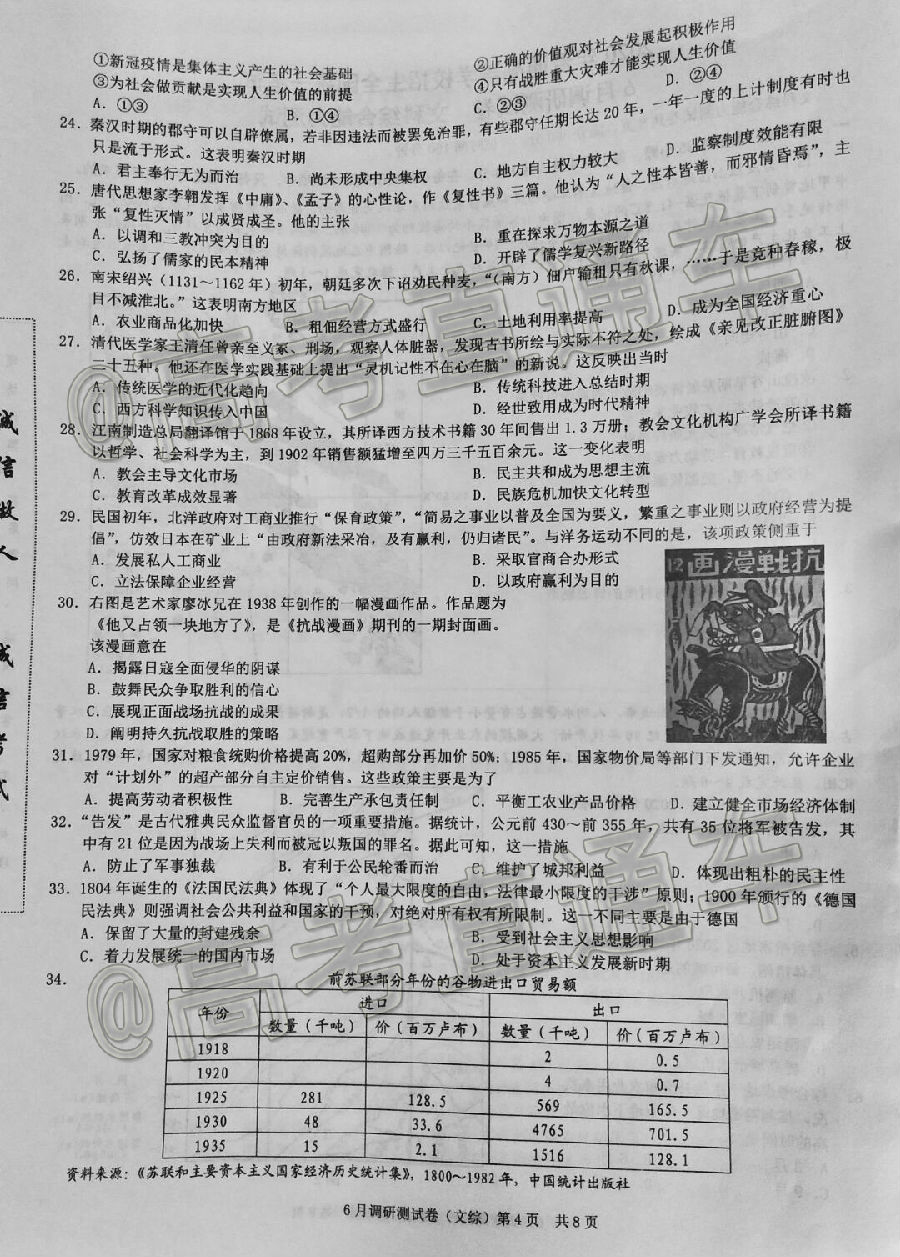 ①新冠疫情是集体主义产生的社会基础
②正确的价值观对社会发展起积极作用
③为社会做贡献是实现人生价值的前提
④只有战胜重大灾难才能实现人生价值
A. ①③
B. ①④
C. ②③
D. ②④
24. 秦汉时期的郡守可以自辟僚属，若非因违法而被罢免治罪，有些郡守任期长达 20 年，一年一度的上计制度有时也
只是流于形式。这表明秦汉时期
A. 君主奉行无为而治
B. 尚未形成中央集权
C. 地方自主权力较大
D. 监察制度效能有限
25. 唐代思想家李翱发挥《中庸》、《孟子》的心性论，作《复性书》三篇。他认为“人之性本皆善，而邪情昏焉”，主
张“复性灭情”以成贤成圣。他的主张
A. 以调和三教冲突为目的
B. 重在探求万物本源之道
C. 弘扬了儒家的民本精神
D. 开辟了儒学复兴新路径
26. 南宋绍兴（1131～1162 年）初年，朝廷多次下诏劝民种麦，“（南方）佃户输租只有秋课，……于是竞种春稼，极
目不减淮北。”这表明南方地区
A. 农业商品化加快
B. 租佃经营方式盛行
C. 土地利用率提高
D. 成为全国经济重心
27. 清代医学家王清任曾亲至义冢、刑场，观察人体脏器，发现古书所绘与实际不符之处，绘成《亲见改正脏腑图》
二十五种。他还在医学实践基础上提出“灵机记性不在心在脑”的新说。这反映出当时
A. 传统医学的近代化趋向
B. 传统科技进入总结时期
C. 西方科学知识传入中国
D. 经世致用成为时代精神
28. 江南制造总局翻译馆于 1868 年设立，其所译西方技术书籍 30 年间售出 1.3 万册；教会文化机构广学会所译书籍
以哲学、社会科学为主，到 1902 年销售额猛增至四万三千五百余元。这一变化表明
A. 教会主导文化市场
B. 民主共和成为思想主流
C. 教育改革成效显著
D. 民族危机加快文化转型
29. 民国初年，北洋政府对工商业推行“保育政策”，“简易之事业以普及全国为要义，繁重之事业则以政府经营为提
倡”，仿效日本在矿业上“由政府新法采冶，及有赢利，仍归诸民”。与洋务运动不同的是，该项政策侧重于
A. 发展私人工商业
B. 采取官商合办形式
C. 立法保障企业经营
D. 以政府赢利为目的
30. 右图是艺术家廖冰兄在 1938 年创作的一幅漫画作品。作品题为
《他又占领一块地方了》，是《抗战漫画》期刊的一期封面画。
该漫画意在
A. 揭露日寇全面侵华的阴谋
B. 鼓舞民众争取胜利的信心
C. 展现正面战场抗战的成果
D. 阐明持久抗战取胜的策略
12 画漫戦抗
31. 1979 年，国家对粮食统购价格提高 20%，超购部分再加价 50%；1985 年，国家物价局等部门下发通知，允许企业
对“计划外”的超产部分自主定价销售。这些政策主要是为了
A. 提高劳动者积极性
B. 完善生产承包责任制
C. 平衡工农业产品价格
D. 建立健全市场经济体制
32. “告发”是古代雅典民众监督官员的一项重要措施。据统计，公元前 430～前 355 年，共有 35 位将军被告发，其
中有 21 位是因为战场上失利而被冠以叛国的罪名。据此可知，这一措施
A. 防止了军事独裁
B. 有利于公民轮番而治
C. 维护了城邦利益
D. 体现出粗朴的民主性
33. 1804 年诞生的《法国民法典》体现了“个人最大限度的自由，法律最小限度的干涉”原则；1900 年颁行的《德国
民法典》则强调社会公共利益和国家的干预，对绝对所有权有所限制。这一不同主要是由于德国
A. 保留了大量的封建残余
B. 受到社会主义思想影响
C. 着力发展统一的国内市场
D. 处于资本主义发展新时期
34.
前苏联部分年份的谷物进出口贸易额
年份 进口 出口
数量（千吨） 价（百万卢布） 数量（千吨） 价（百万卢布）
1918 2 0.5
1920 4 0.7
1925 281 128.5 569 165.5
1930 48 33.6 4765 701.5
1935 15 2.1 1516 128.1
资料来源：《苏联和主要资本主义国家经济历史统计集》，1800～1982 年，中国统计出版社
6 月调研测试卷（文综）第 4 页 共 8 页
诚信做人 诚信考试
@高考直通车
@高考直通车